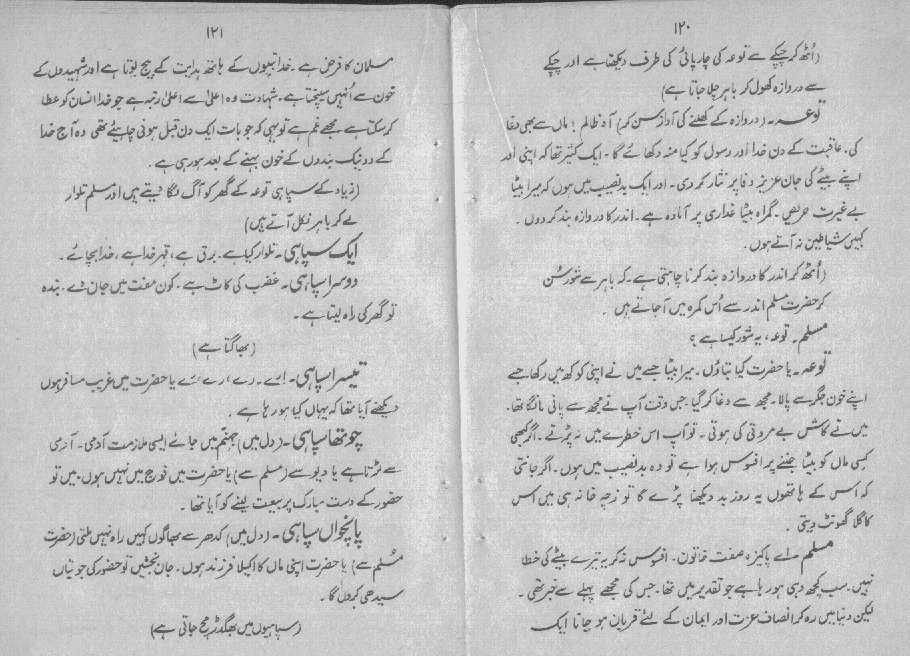 ۱۲۰
(اُٹھ کر چپکے سے توعہ کی چارپائی کی طرف دیکھتا ہے اور چپکے
سے دروازہ کھول کر باہر چلا جاتا ہے)
توعہ۔ (دروازہ کے کھلنے کی آواز سن کر) آہ ظالم! ماں سے بھی دغا
کی۔ عاقبت کے دن خدا اور رسول کو کیا منہ دکھائے گا۔ ایک کثیر تھا کہ اپنی اور
اپنے بیٹے کی جان عزیز وفا پر نثار کر دی۔ اور ایک بدنصیب میں ہوں کہ میرا بیٹا
بے غیرت حریص۔ گمراہ بیٹا غداری پر آمادہ ہے۔ اندر کا دروازہ بند کر دوں۔
کہیں شیاطین نہ آتے ہوں۔
(اُٹھ کر اندر کا دروازہ بند کرنا چاہتی ہے۔ کہ باہر سے شور سُن
کر حضرت مسلم اندر سے اُس کمرہ میں آجاتے ہیں
مسلم۔ توعہ، یہ شور کیسا ہے؟
توعہ۔ یا حضرت کیا بتاؤں۔ میرا بیٹا جسے میں نے اپنی کوکھ میں رکھا جسے
اپنے خون جگر سے پالا۔ مجھ سے دغا کر گیا۔ جس وقت آپ نے مجھ سے پانی مانگا تھا۔
میں نے کاش بے مروتی کی ہوتی۔ تو آپ اس خطرے میں نہ پڑتے۔ اگر کبھی
کسی ماں کو بیٹا جننے پر افسوس ہوا ہے تو وہ بدنصیب میں ہوں۔ اگر جانتی
کہ اس کے ہاتھوں یہ روز بد دیکھنا پڑے گا تو زچہ خانہ ہی میں اس
کا گلا گھونٹ دیتی۔
مسلم۔ اے پاکیزہ صفت خاتون۔ افسوس نہ کر یہ تیرے بیٹے کی خطا
نہیں۔ سب کچھ وہی ہو رہا ہے جو تقدیر میں تھا۔ جس کی مجھے پہلے سے خبر تھی۔
لیکن دنیا میں رہ کر انصاف عزت اور ایمان کے لئے قربان ہو جانا ایک
۱۲۱
مسلمان کا فرض ہے۔ خدا نبیوں کے ہاتھ ہدایت کے بیج بوتا ہے اور شہیدوں کے
خون سے اُنہیں سینچتا ہے۔ شہادت وہ اعلیٰ سے اعلیٰ رتبہ ہے جو خدا انسان کو عطا
کر سکتا ہے۔ مجھے غم ہے تو یہی کہ جو بات ایک دن قبل ہونی چاہیئے تھی وہ آج خدا
کے دو نیک بندوں کے خون بہنے کے بعد ہو رہی ہے۔
(زیاد کے سپاہی توعہ کے گھر کو آگ لگا دیتے ہیں اور مسلم تلوار
لے کر باہر نکل آتے ہیں)
ایک سپاہی۔ تلوار کیا ہے۔ برق ہے، قہر خدا ہے، خدا بچائے۔
دوسرا سپاہی۔ غضب کی کاٹ ہے۔ کون مفت میں جان دے۔ بندہ
تو گھر کی راہ لیتا ہے۔
(بھاگتا ہے)
تیسرا سپاہی۔ ارے رے رے رے یا حضرت میں غریب مسافر ہوں
دیکھنے آیا تھا کہ یہاں کیا ہو رہا ہے۔
چوتھا سپاہی۔ (دل میں) جہنم میں جائے ایسی ملازمت آدمی۔ آدمی
سے لڑتا ہے یا دیو سے (مسلم سے) یا حضرت میں فوج میں نہیں ہوں۔ میں تو
حضور کے دست مبارک پر بیعت لینے کو آیا تھا۔
پانچواں سپاہی۔ (دل میں) کدھر سے بھاگوں کہیں راہ نہیں ملتی (حضرت
مُسلم سے) یا حضرت اپنی ماں کا اکیلا فرزند ہوں۔ جان بخشیں تو حضور کی جوتیاں
سیدھی کروں گا۔
(سپاہیوں میں بھگدڑ مچ جاتی ہے)